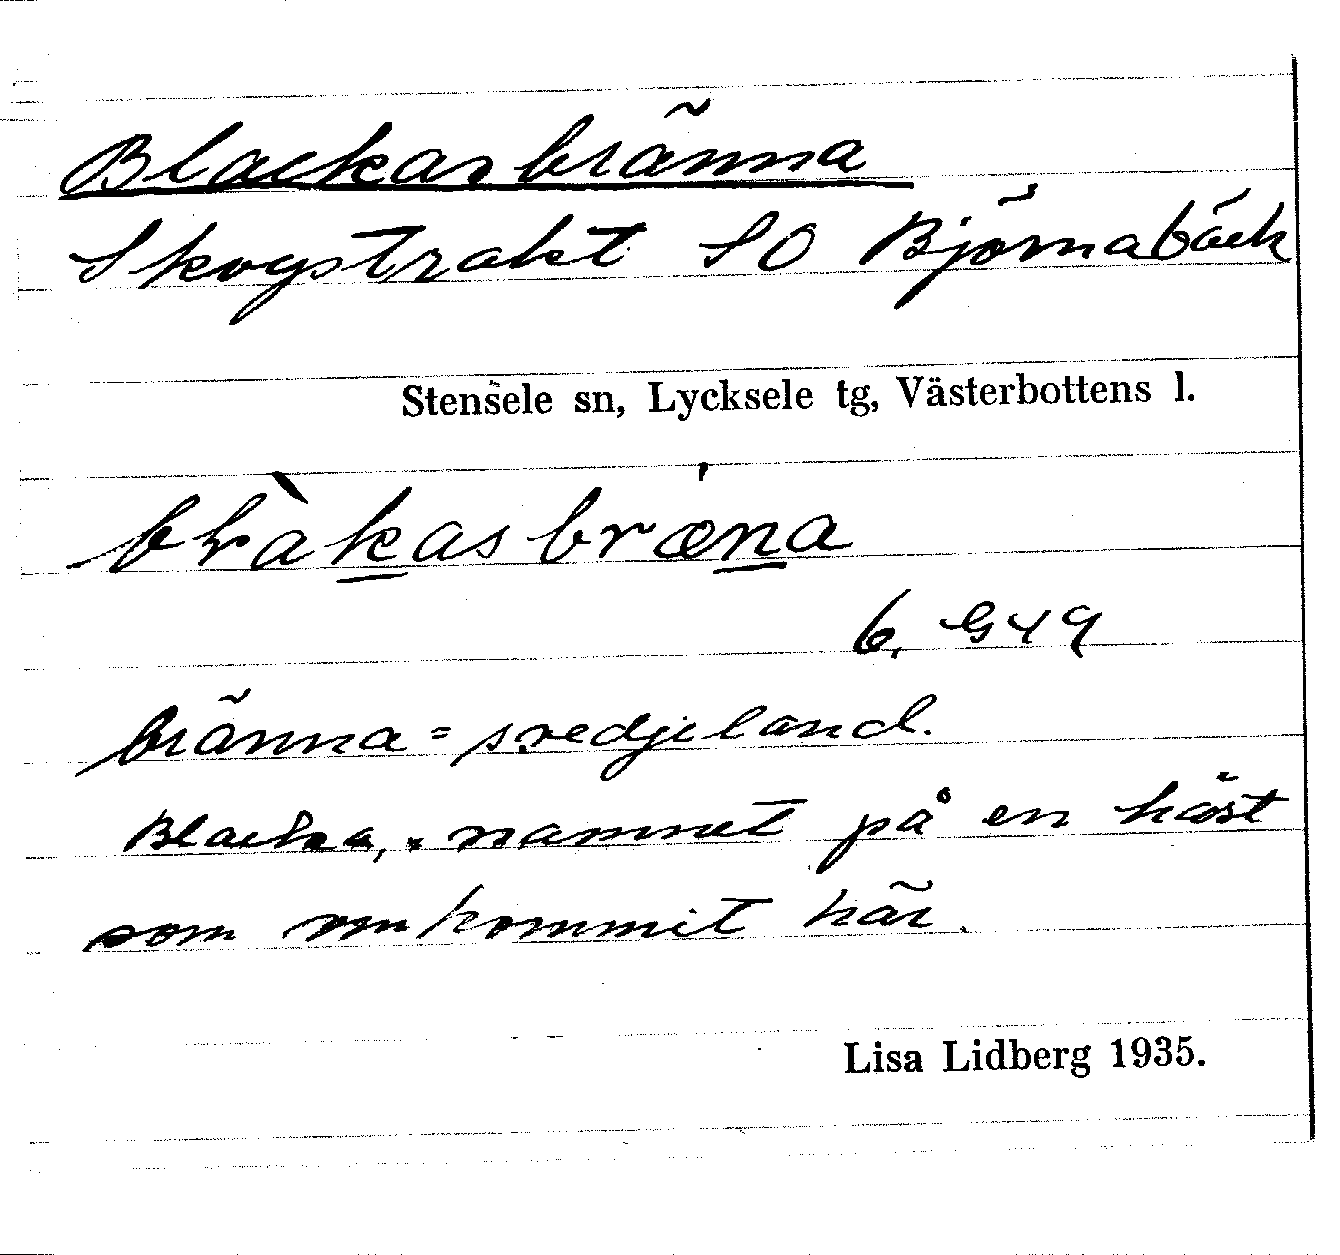 Blackasbränna
Skogstrakt SO Björnabäck
Stensele sn, Lycksele tg, Västerbottens l.
blràkasbrǽna
6. G49
bränna = svedjeland.
Blacka, namnet på en häst
som omkommit här.
Lisa Lidberg 1935.